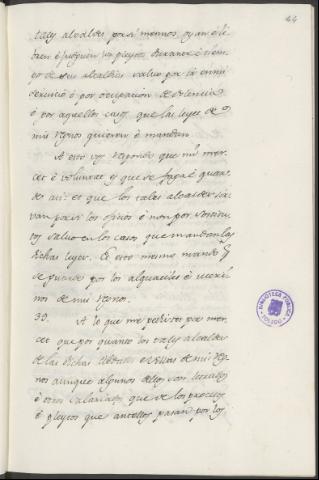 44
tales alcaldes por si mesmos oyan é li
bren é judguen los pleytos durante el tiem
po de sus alcaldias salvo por la enmi
é por ocupacion de dolencia
ó por aquellos casos que las leyes de
mis regnos quieren é mandan
A esto vos respondo que mi mer
cet é voluntat es que se faga é guar
de asi: et que los tales alcaldes sir
van por si los oficios é non por sostitu
tos salvo en los casos que mandan las
dichas leyes. Et esto mesmo mando q
se guarde por los alguaciles é meri
nos de mis regnos.
39. A lo que me pedistes por mer
cet que por quanto los tales alcaldes
de las dichas cibdades é villas de mis reg
nos aunque algunos dellos son letrados
é otros salariados que de los procesos
é pleytos que antellos pasan por los
BIBLIOTECA PUBLICA
TOLEDO